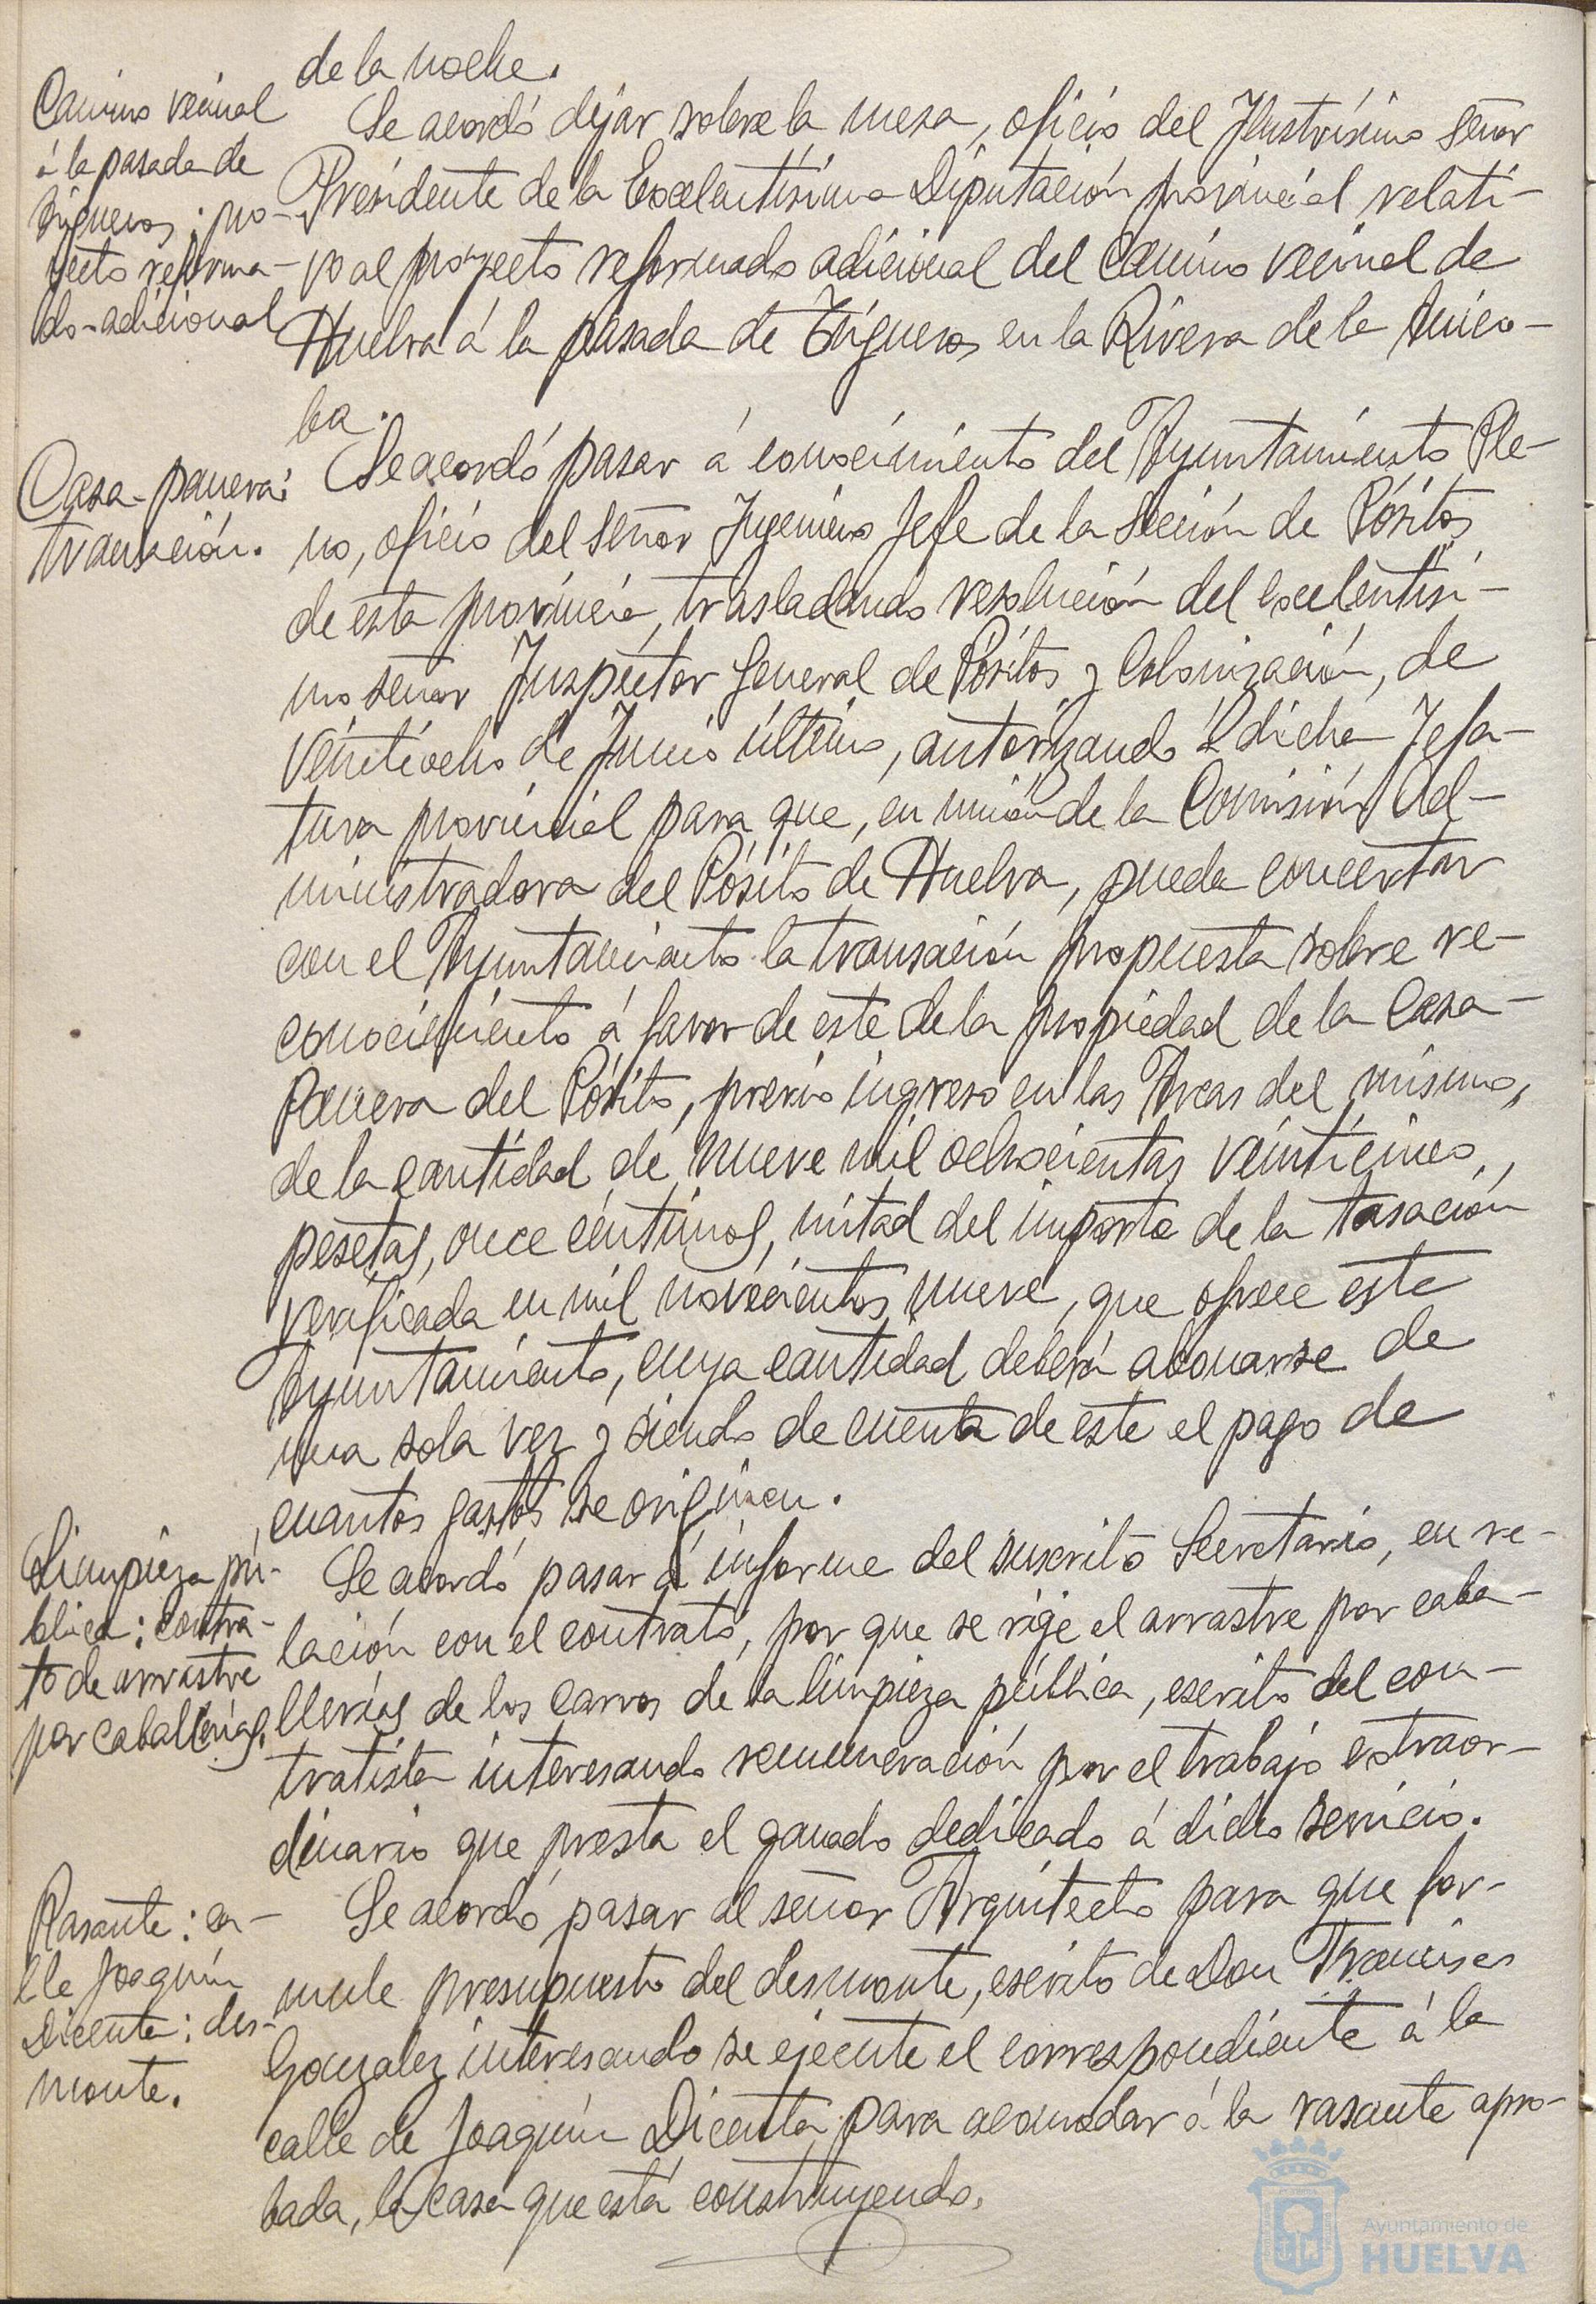 de la noche.
Camino vecinal
á la pasada de
Trigueros: pro-
yecto reforma-
do-adicional
Se acordó dejar sobre la mesa, oficio del Ilustrísimo señor
Presidente de la Excelentísima Diputación provincial relati-
vo al proyecto reformado adicional del camino vecinal de
Huelva á la pasada de Trigueros en la Rivera de la Anico-
ba.
Casa-panera:
transación.
Se acordó pasar á conocimiento del Ayuntamiento Ple-
no, oficio del señor Ingeniero Jefe de la Sección de Pósitos
de esta provincia, trasladando resolución del excelentísi-
mo señor Inspector General de Pósitos y Colonización, de
veintiocho de Junio último, autorizando á dicha Jefa-
tura provincial para que, en unión de la Comisión Ad-
ministradora del Pósito de Huelva, pueda concertar
con el Ayuntamiento la transación propuesta sobre re-
conocimiento á favor de este de la propiedad de la Casa-
Panera del Pósito, previo ingreso en las Arcas del mismo,
de la cantidad de nueve mil ochocientas veinticinco,
pesetas, once céntimos, mitad del importe de la tasación
verificada en mil novecientos nueve, que ofrece este
Ayuntamiento, cuya cantidad deberá abonarse de
una sola vez y siendo de cuenta de este el pago de
cuantos gastos se originen.
Limpieza pú-
blica: contra-
to de arrastre
por caballerías.
Se acordó pasar á informe del suscrito Secretario, en re-
lación con el contrato, por que se rige el arrastre por caba-
llerías de los carros de la limpieza pública, escrito del con-
tratista interesando remuneración por el trabajo extraor-
dinario que presta el ganado dedicado á dicho servicio.
Rasante: ca-
lle Joaquín
Dicenta: des-
monte.
Se acordó pasar al señor Arquitecto para que for-
mule presupuesto del desmonte, escrito de Don Francisco
Gonzalez interesando se ejecute el correspondiente á la
calle de Joaquín Dicenta para acomodar á la rasante apro-
bada, la casa que está construyendo.
Ayuntamiento de
HUELVA